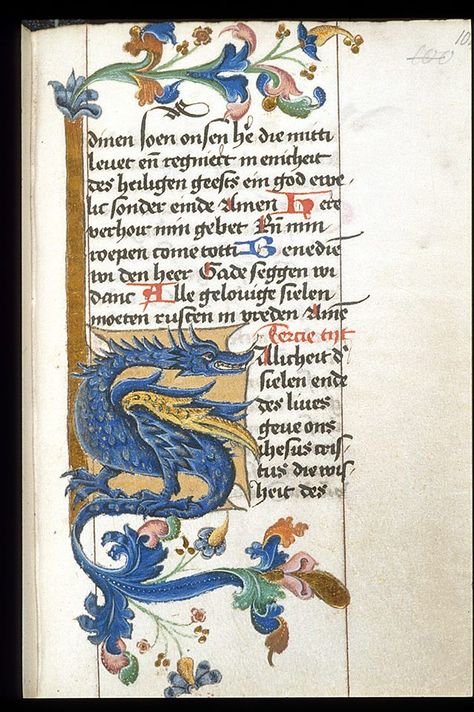 10
100
de
dinen soen onsen hē die mitti
levet eñ regniert in enicheit
des heiligen geests ein god ewe-
lic sonder einde Amen Here
verhoir min gebet Eñ min
roepen come totti Benediē
wi den heer Gade seggen wi
danc Alle gelovige sielen
moeten rusten in vreden Amē
Tercie tijt
Alicheit d'
sielen ende
des lives
geve ons
ihesus cris-
tus die wis-
heit des